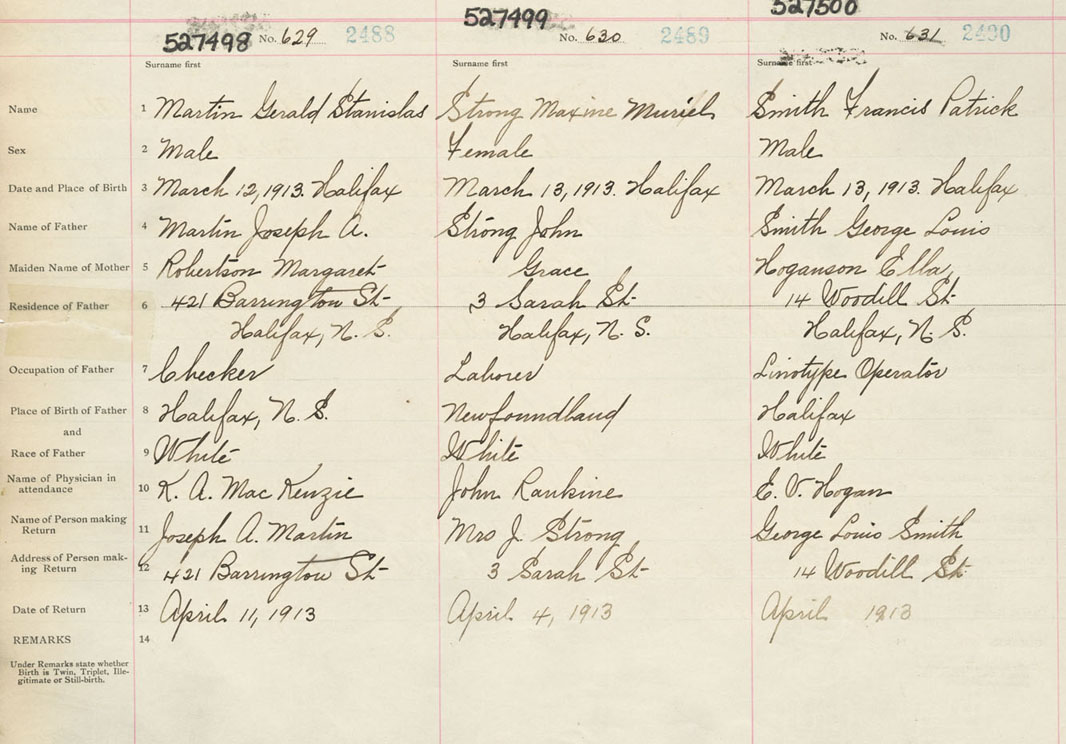 527498 No. 629 2488
527499 No. 630 2489
527500 No. 631 2490
Surname first Surname first Surname first
Name 1 Martin Gerald Stanislas Strong Maxine Muriel Smith Francis Patrick
Sex 2 Male Female Male
Date and Place of Birth 3 March 12, 1913. Halifax March 13, 1913. Halifax March 13, 1913. Halifax
Name of Father 4 Martin Joseph A. Strong John Smith George Louis
Maiden Name of Mother 5 Robertson Margaret Grace Hoganson Ella
Residence of Father 6 421 Barrington St 3 Sarah St 14 Woodill St
Halifax, N. S. Halifax, N. S. Halifax, N. S.
Occupation of Father 7 Checker Laborer Linotype Operator
Place of Birth of Father 8 Halifax, N. S. Newfoundland Halifax
and
Race of Father 9 White White White
Name of Physician in
attendance 10 K. A. Mac Kenzie John Rankine E. V. Hogan
Name of Person making
Return 11 Joseph A. Martin Mrs J. Strong George Louis Smith
Address of Person mak-
ing Return 12 421 Barrington St 3 Sarah St 14 Woodill St.
Date of Return 13 April 11, 1913 April 4, 1913 April 1913
REMARKS 14
Under Remarks state whether
Birth is Twin, Triplet, Ille-
gitimate or Still-birth.